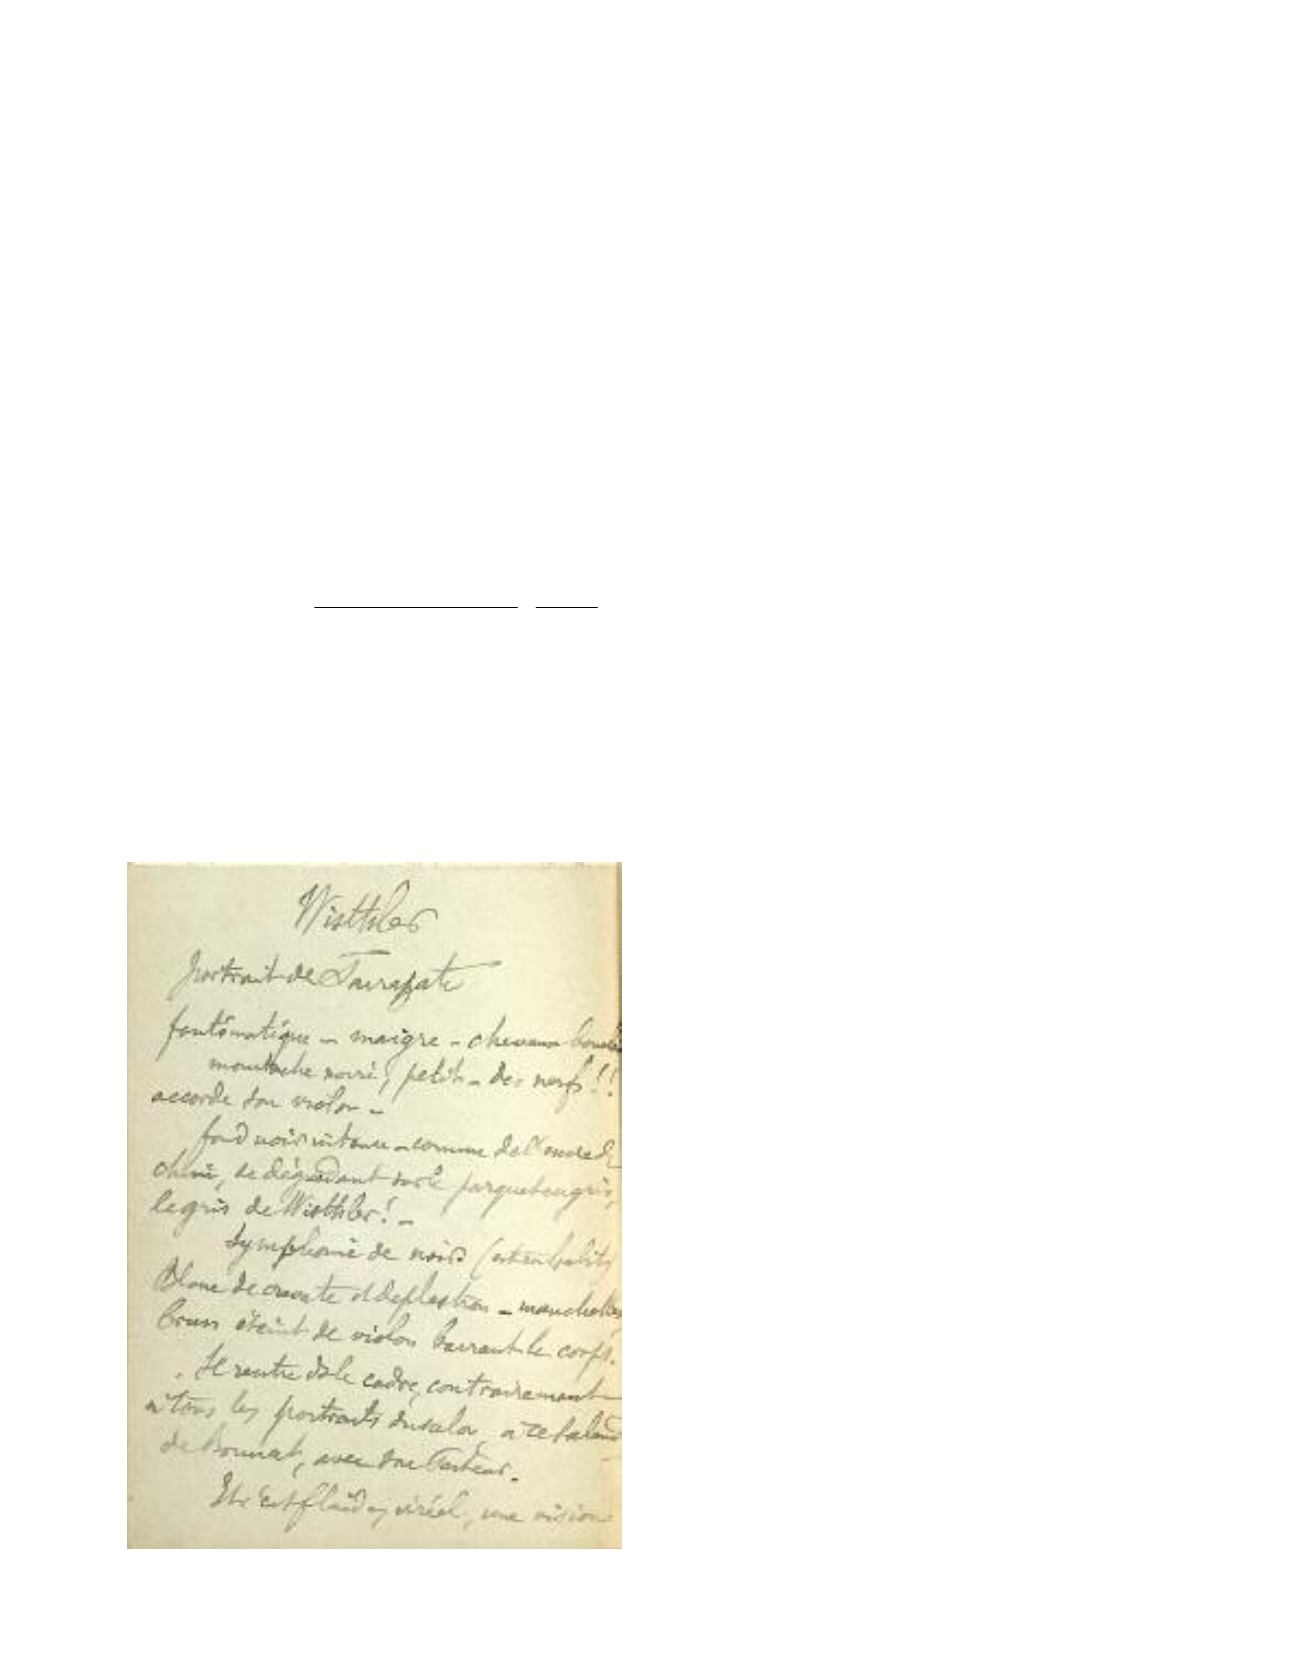 Wisthler
portrait de Sarasate
fantômatique - maigre - cheveux bouclés
moustache noire, petit - des nerfs!!
accorde son violon -
fond noir intense - comme de l'encre de
chine, se dégradant sur le parquet en gris,
le gris de Wisthler! -
Symphonie de noir
Blanc de cravate et de plastron - manchettes
brun éteint de violon barrant le corps.
Il rentre ds le cadre, contrairement
à tous les portraits du salon, à ce
de Bonnat, avec son Pasteur.
Et c'est fluide, irréel, une vision